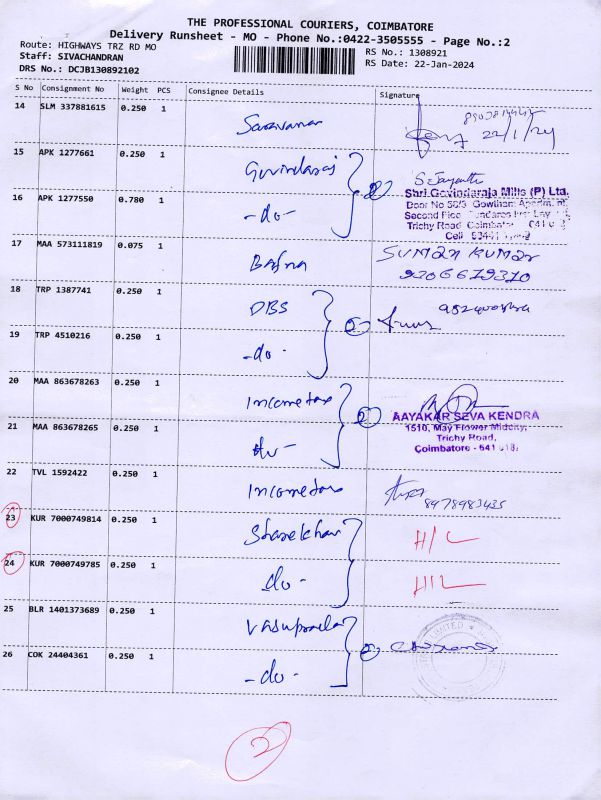 THE PROFESSIONAL COURIERS, COIMBATORE
Delivery Runsheet - MO - Phone No.:0422-3505555 - Page No.:2
Route: HIGHWAYS TRZ RD MO
RS No.: 1308921
Staff: SIVACHANDRAN
RS Date: 22-Jan-2024
DRS No.: DCJB130892102
S No Consignment No Weight PCS Consignee Details Signature
14 SLM 337881615 0.250 1 Saravanan
22/1/24
15 APK 1277661 0.250 1 Govindaraj
Shri.Govindaraja Mills (P) Ltd.
16 APK 1277550 0.780 1 -do-
Trichy Road
17 MAA 573111819 0.075 1 Bafna SUMAN KUMAR
9306679310
18 TRP 1387741 0.250 1 DBS
19 TRP 4510216 0.250 1 -do-
20 MAA 863678263 0.250 1 Incometax 2
AAYAKAR SEVA KENDRA
1510, May Flower
21 MAA 863678265 0.250 1
Trichy Road,
Coimbatore - 641 018.
22 TVL 1592422 0.250 1 Incometax
8978983435
23 KUR 7000749814 0.250 1 Sharekhan H/C
24 KUR 7000749785 0.250 1 do-
25 BLR 1401373689 0.250 1
LIMITED
26 COK 24404361 0.250 1 -do-
2